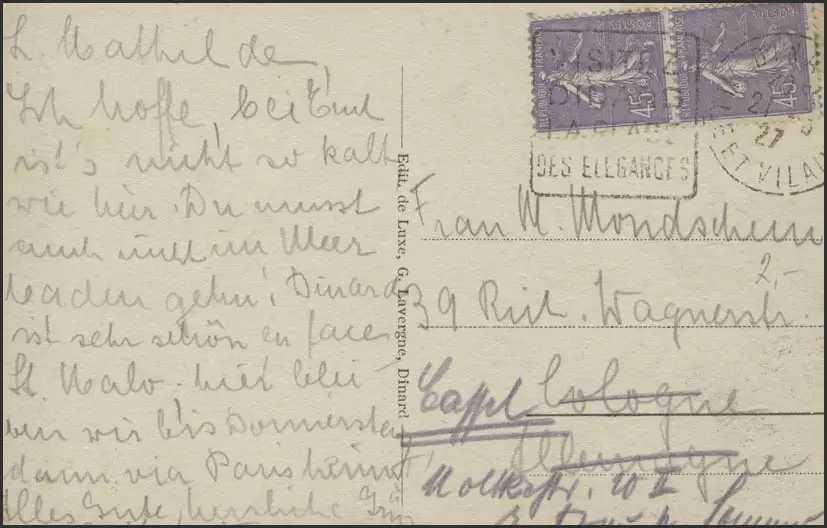 L. Mathilde,
Ich hoffe, bei Euch
ist's nicht so kalt
wie hier. Du musst
auch nicht im Meer
baden gehn! Dinard
ist sehr schön en face
St. Malo. hier blei-
ben wir bis Donnerstag
dann via Paris heim
Alles Gute, herzliche
Edit. de Luxe, G. Lavergne, Dinard
POSTES
REPUBLIQUE FRANÇAISE
45c
POSTES
REPUBLIQUE FRANÇAISE
45c
VISITEZ
DINARD
LA PLAGE
DES ELEGANCES
21
27
ET VILAI
Frau M. Mondschein
2,-
39 Rich. Wagnerstr.
Cassel Cologne
Allemagne
Moltkestr. 10 I